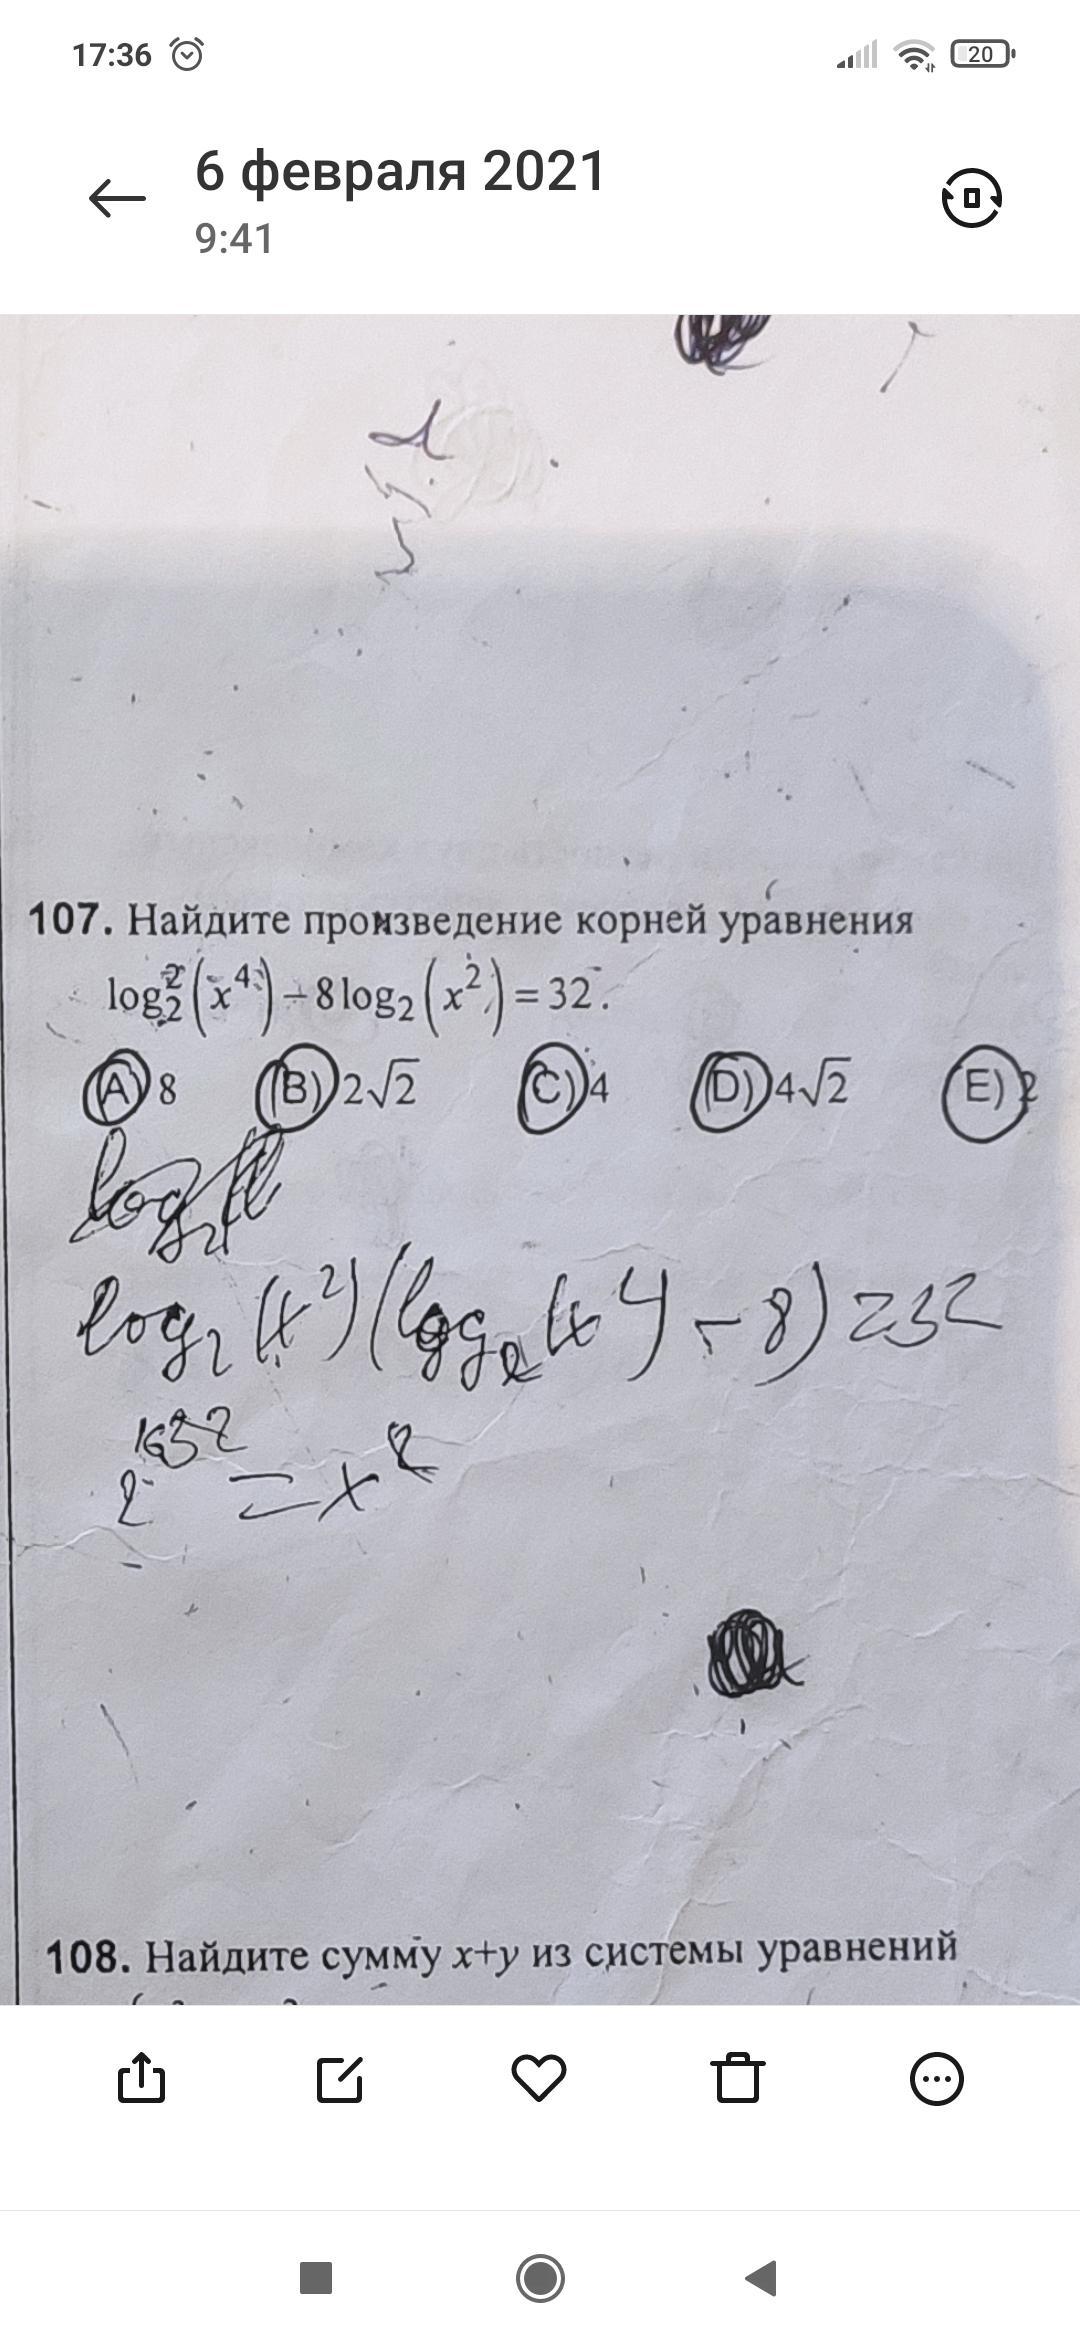 17:36
20
6 февраля 2021
9:41
107. Найдите произведение корней уравнения
log₂²(x⁴) − 8log₂(x²) = 32.
A) 8 B) 2√2 C) 4 D) 4√2 E) 2
log₂
log₂(x²)(log₂(x⁴) − 8) = 32
= x
108. Найдите сумму x+y из системы уравнений